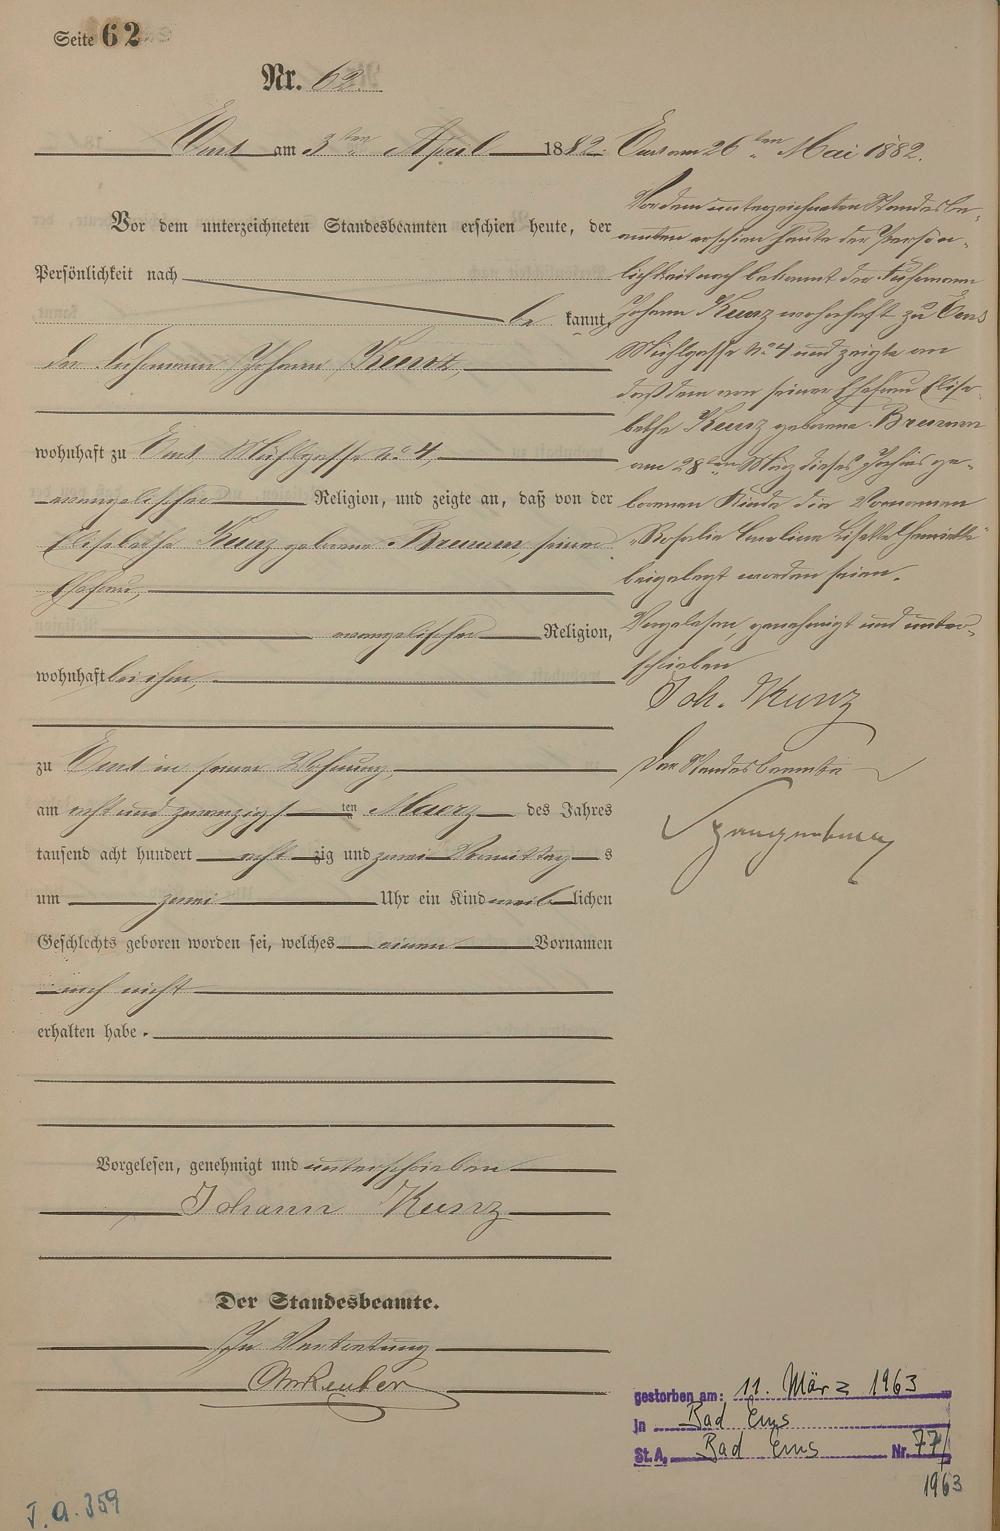 Seite 62
Nr. 62.
Ems am 3ten April 1882.
Vor dem unterzeichneten Standesbeamten erschien heute, der
Persönlichkeit nach
be kannt,
der Fuhrmann Johann Kunz,
wohnhaft zu Ems, Mühlgasse No 4,
evangelischer Religion, und zeigte an, daß von der
Elisabethe Kunz geborene Bremm, seiner
Ehefrau,
evangelischer Religion,
wohnhaft bei ihm,
zu Ems in seiner Wohnung,
am acht und zwanzigsten Maerz des Jahres
tausend acht hundert acht zig und zwei Vormittags
um zwei Uhr ein Kind weiblichen
Geschlechts geboren worden sei, welches einen Vornamen
noch nicht
erhalten habe.
Vorgelesen, genehmigt und unterschrieben
Johann Kunz
Der Standesbeamte.
In Vertretung
Ems am 26ten Mai 1882.
Vor dem unterzeichneten Standesbe-
amten erschien heute der Persön-
lichkeit nach bekannt der Fuhrmann
Johann Kunz wohnhaft zu Ems
Mühlgasse No 4 und zeigte an
daß dem von seiner Ehefrau Elisa-
bethe Kunz geborene Bremm
am 28ten März dieses Jahres ge-
borenen Kinde die Vornamen
"Rosalie Caroline Lisette Henriette"
beigelegt worden seien.
Vorgelesen, genehmigt und unter-
schrieben
Joh. Kunz
Der Standesbeamte
gestorben am: 11. März 1963
in Bad Ems
St.A. Bad Ems Nr. 77/
1963
J. a. 359